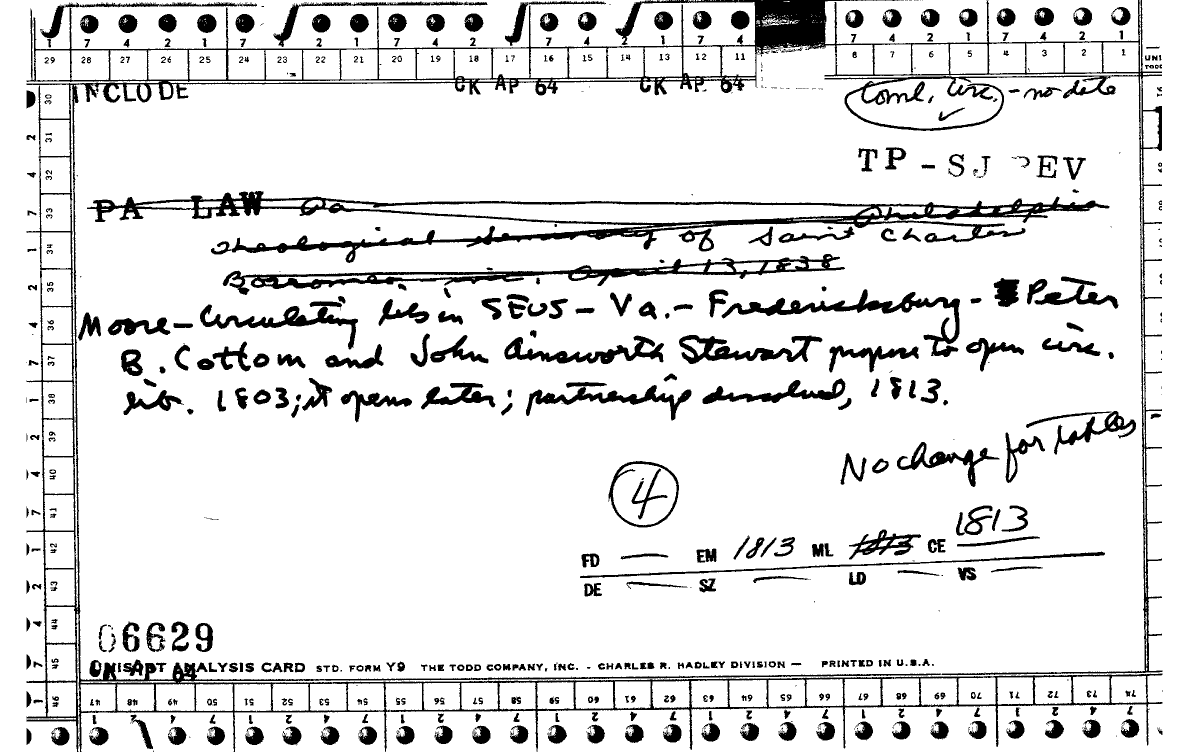 1 7 4 2 1 7 4 2 1 7 4 2 1 7 4 2 1 7 4 7 4 2 1 7 4 2 1
29 28 27 26 25 24 23 22 21 20 19 18 17 16 15 14 13 12 11 8 7 6 5 4 3 2 1
INCLUDE CK AP 64 CK AP 64 Coml. Circ. - no date
TP - SJ REV
PA LAW Pa Philadelphia
Theological Seminary of Saint Charles
Borromeo, inc. April 13, 1838
Moore - Circulating libs in SEUS - Va. - Fredericksburg - Peter
B. Cottom and John Ainsworth Stewart propose to open circ.
lib. 1803; it opens later; partnership dissolved, 1813.
No change for Tables
4
1813
FD — EM 1813 ML 1813 CE
DE — SZ — LD — VS —
06629
CK AP 64
UNISORT ANALYSIS CARD STD. FORM Y9 THE TODD COMPANY, INC. - CHARLES R. HADLEY DIVISION — PRINTED IN U.S.A.
47 48 49 50 51 52 53 54 55 56 57 58 59 60 61 62 63 64 65 66 67 68 69 70 71 72 73 74